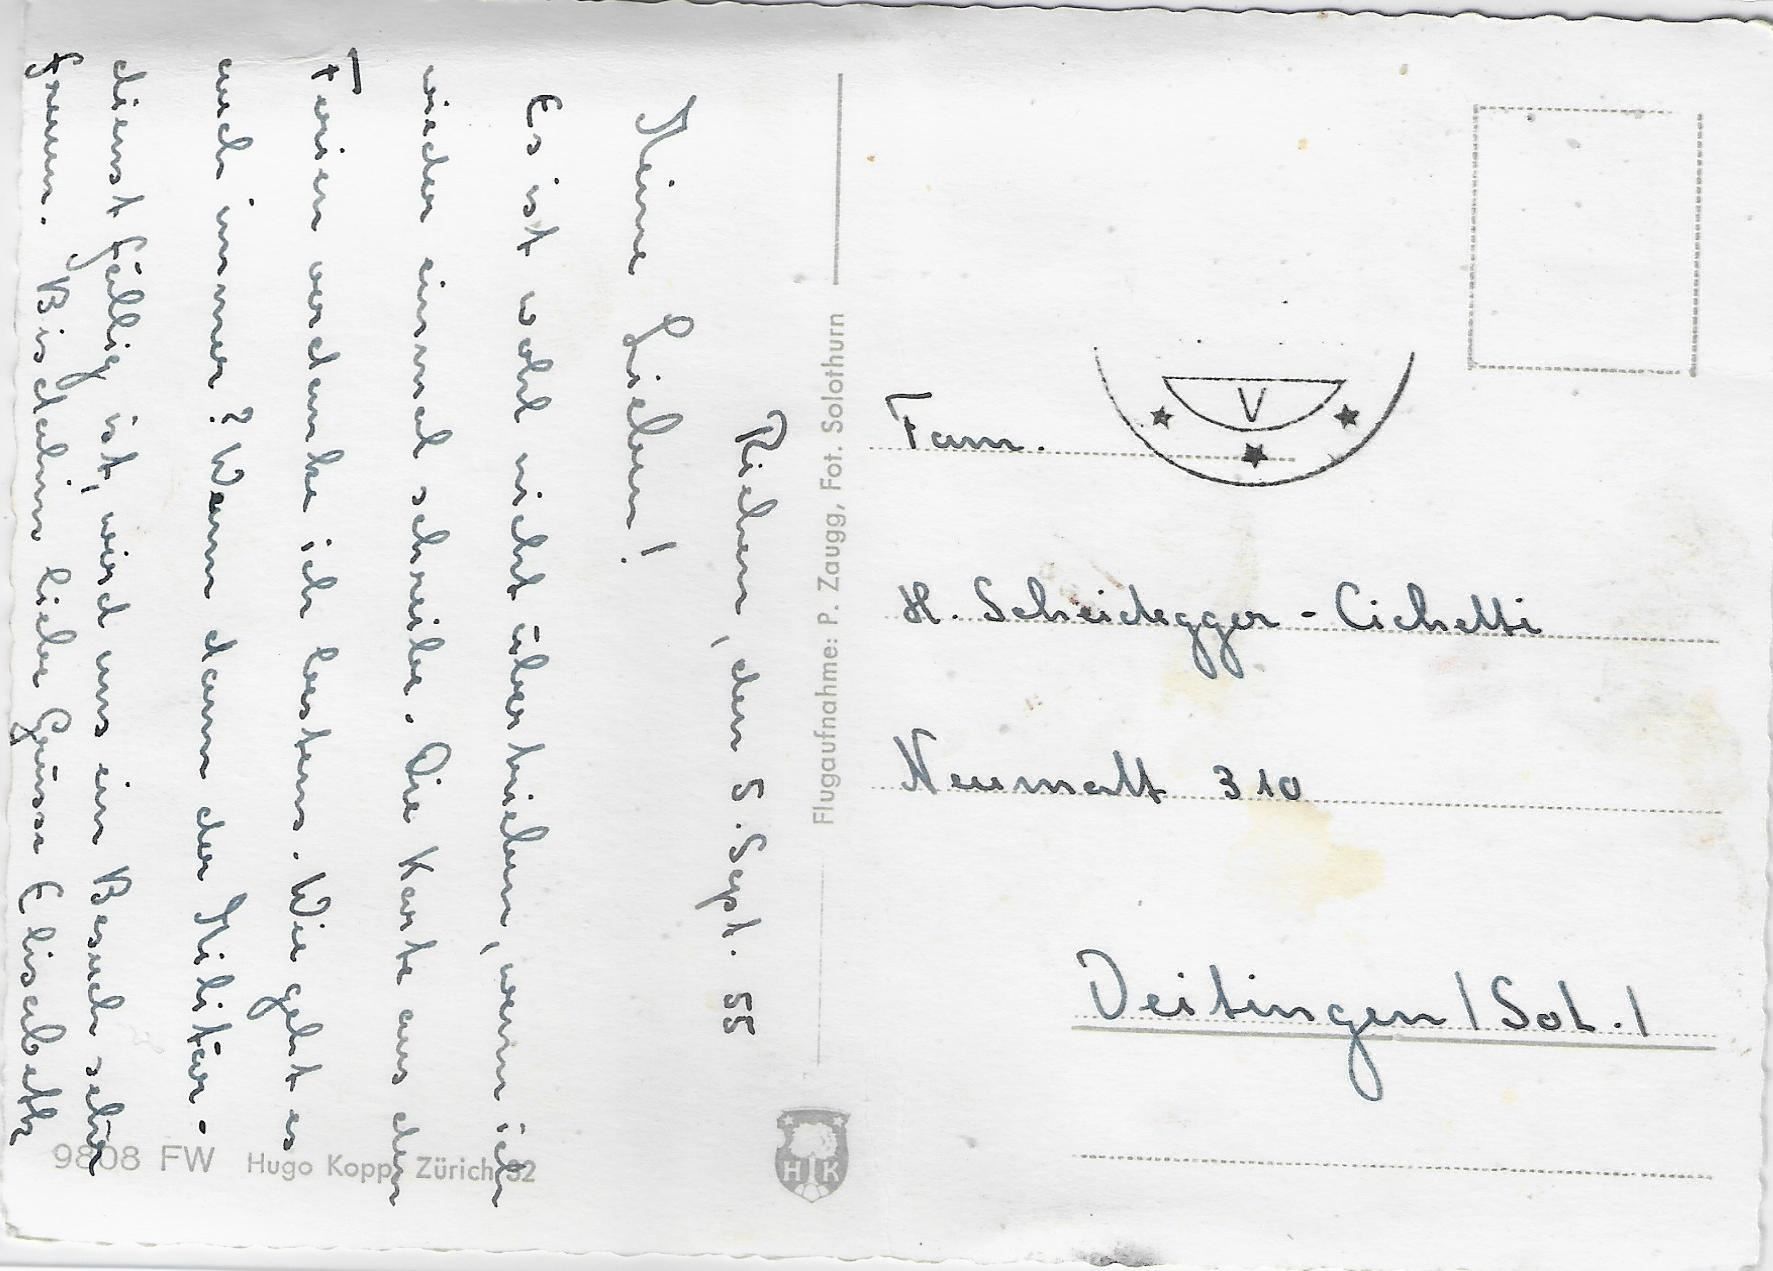 Riehen, den 5. Sept. 55
Meine Lieben!
Es ist wohl nicht übertrieben, wenn ich
wieder einmal schreibe. Die Karte aus den
Ferien verdanke ich bestens. Wie geht es
euch immer? Wenn dann der Militär-
dienst fällig ist, wird uns ein Besuch sehr
freuen. Bis dahin liebe Grüsse Elisabeth
9808 FW Hugo Kopp, Zürich 32
Flugaufnahme: P. Zaugg, Fot. Solothurn
H K
V
Fam.
H. Scheidegger-Cichetti
Neumatt 310
Deitingen / Sol. /